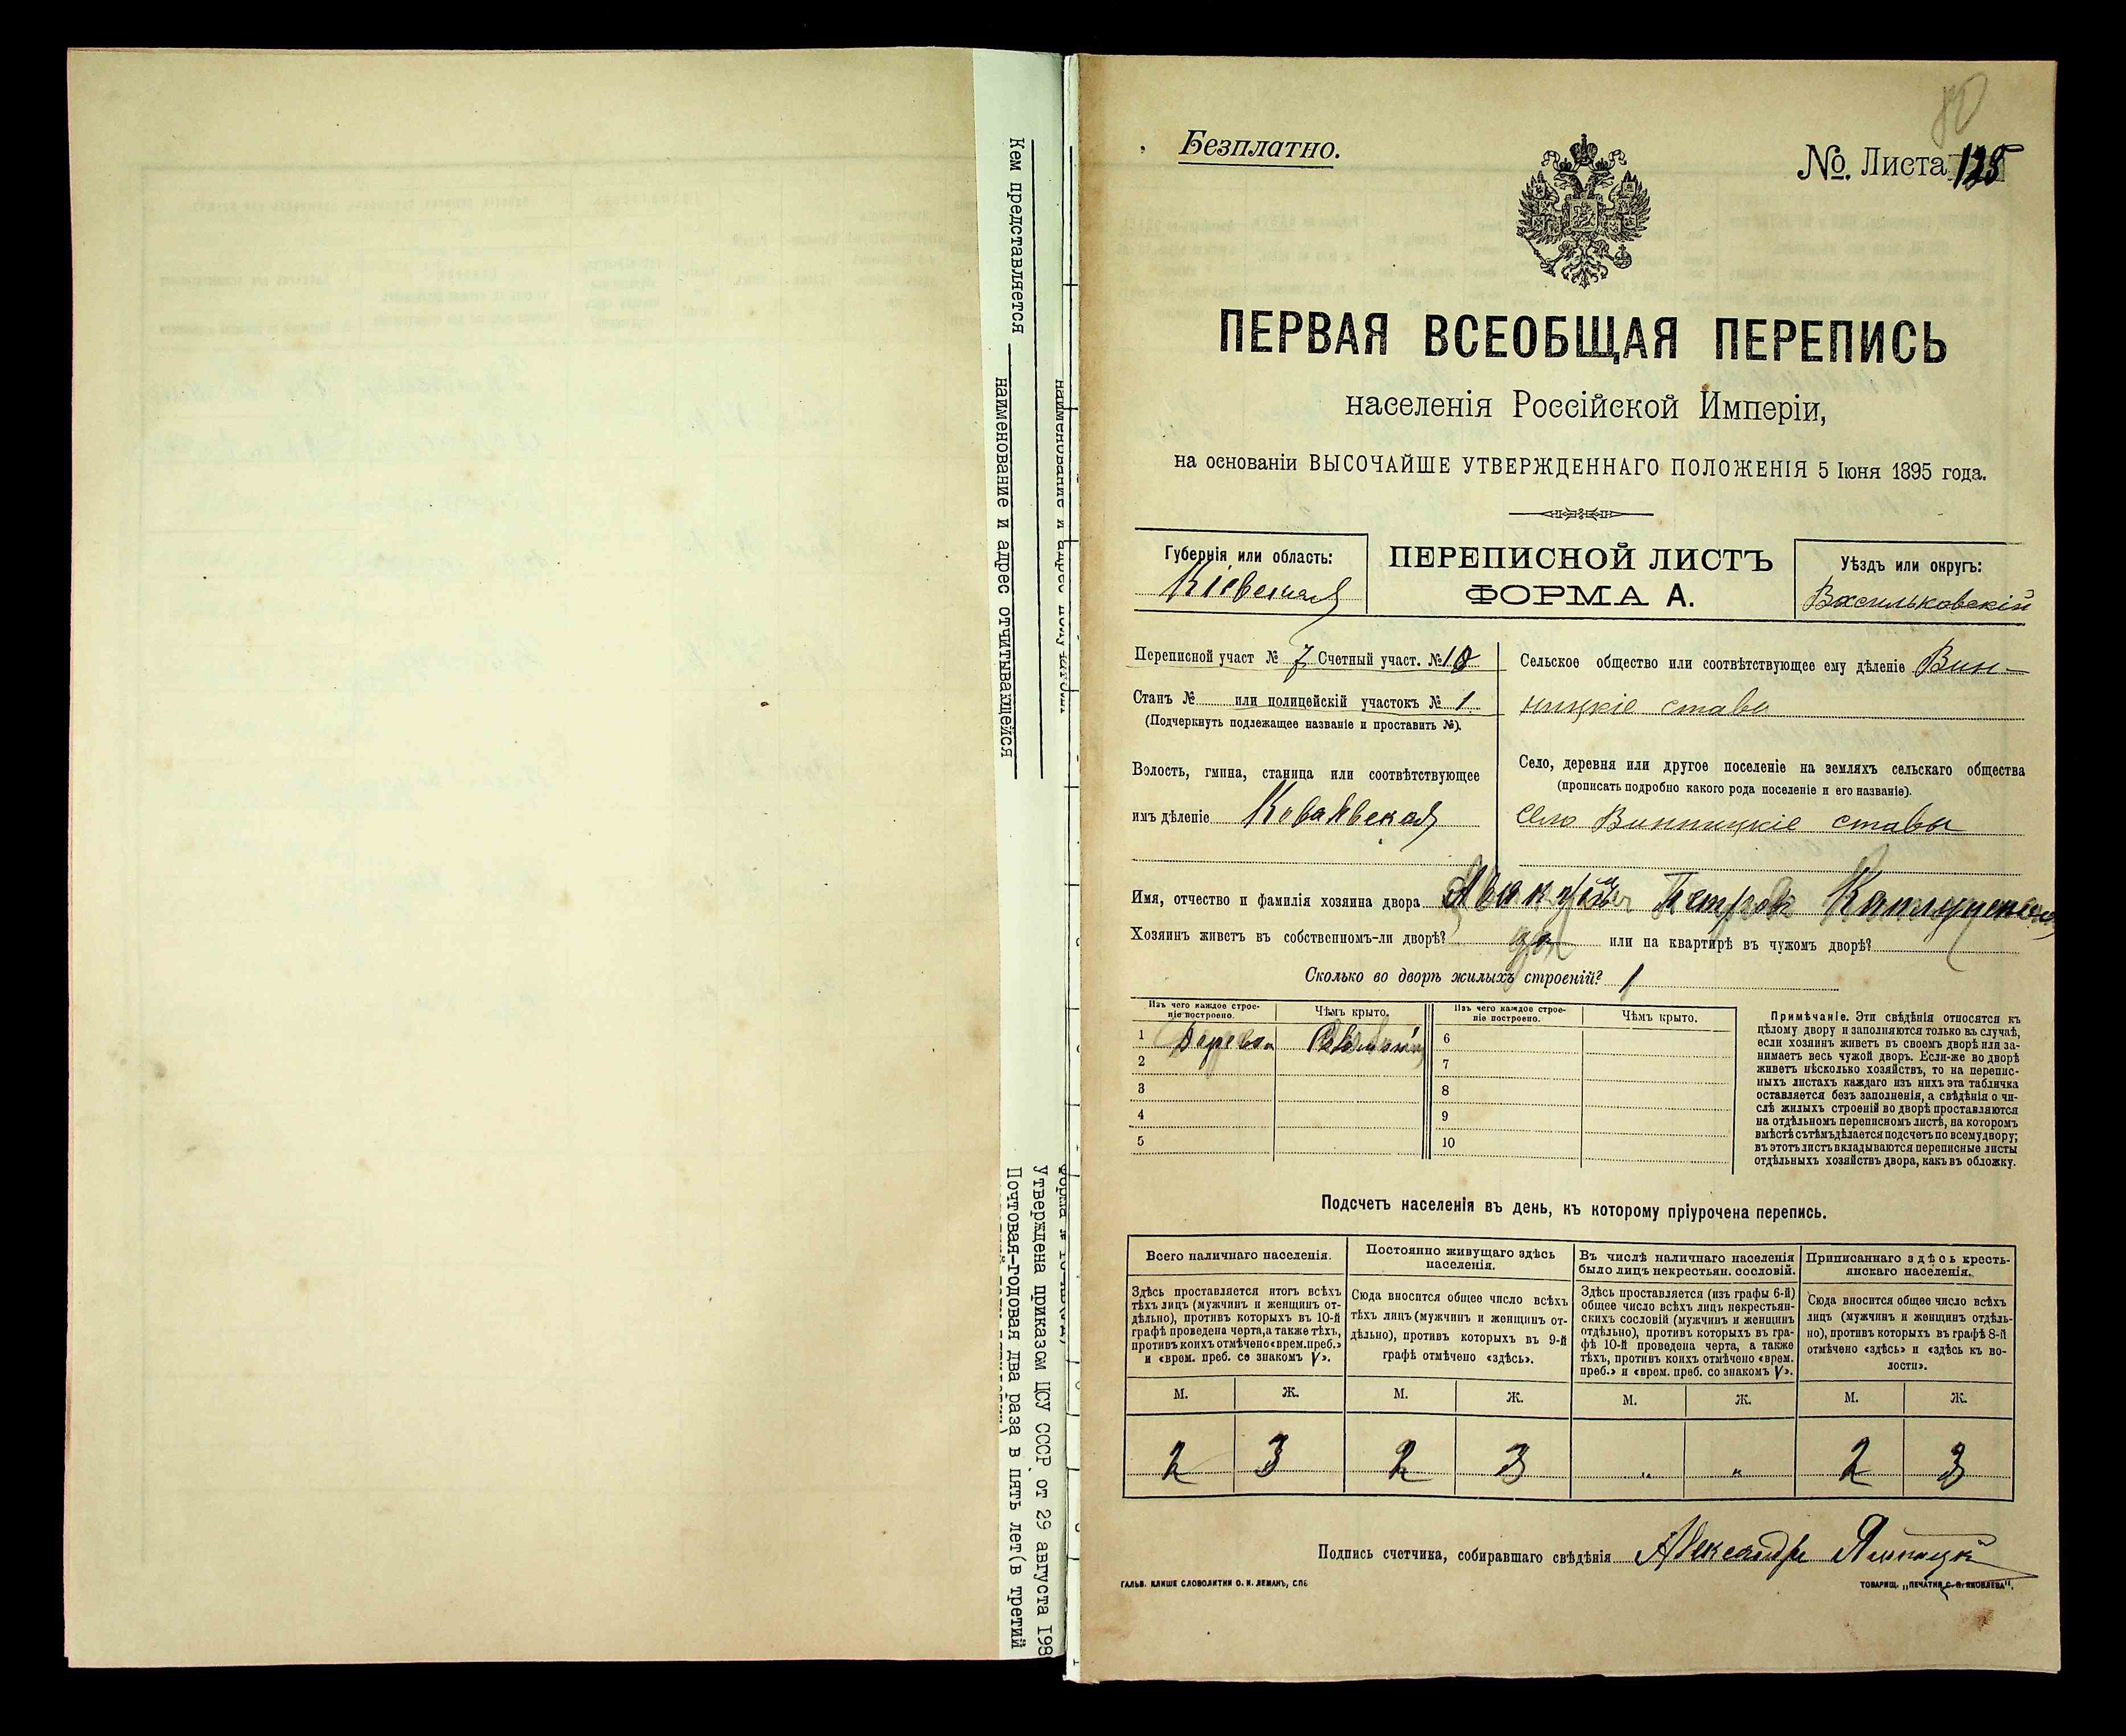 Кем представляется
наименование и адрес отчитывающейся
Утверждена приказом ЦСУ СССР от 29 августа 198
Почтовая-годовая два раза в пять лет(в третий
80
Безплатно.
№. Листа 125
ПЕРВАЯ ВСЕОБЩАЯ ПЕРЕПИСЬ
населенія Россійской Имперіи,
на основаніи ВЫСОЧАЙШЕ УТВЕРЖДЕННАГО ПОЛОЖЕНІЯ 5 Іюня 1895 года.
Губернія или область:
Кіевская
ПЕРЕПИСНОЙ ЛИСТЪ
ФОРМА А.
Уѣздъ или округъ:
Васильковскій
Переписной участ № 7 Счетный участ. № 10
Станъ № или полицейскій участокъ № 1
(Подчеркнуть подлежащее названіе и проставить №).
Волость, гмина, станица или соотвѣтствующее
имъ дѣленіе
Сельское общество или соотвѣтствующее ему дѣленіе Вин-
ницкіе ставы
Село, деревня или другое поселеніе на земляхъ сельскаго общества
(прописать подробно какого рода поселеніе и его названіе).
село Винницкіе ставы
Имя, отчество и фамилія хозяина двора Петров
Хозяинъ живетъ въ собственномъ-ли дворѣ? да или на квартирѣ въ чужомъ дворѣ?
Сколько во дворѣ жилыхъ строеній? 1
Изъ чего каждое строе-
ніе построено.
Чѣмъ крыто.
Изъ чего каждое строе-
ніе построено.
Чѣмъ крыто.
1 Дерева 6
2 7
3 8
4 9
5 10
Примѣчаніе. Эти свѣдѣнія относятся къ
цѣлому двору и заполняются только въ случаѣ,
если хозяинъ живетъ въ своемъ дворѣ или за-
нимаетъ весь чужой дворъ. Если-же во дворѣ
живетъ нѣсколько хозяйствъ, то на перепис-
ныхъ листахъ каждаго изъ нихъ эта табличка
оставляется безъ заполненія, а свѣдѣнія о чи-
слѣ жилыхъ строеній во дворѣ проставляются
на отдѣльномъ переписномъ листѣ, на которомъ
вмѣстѣ съ тѣмъ дѣлается подсчетъ по всему двору;
въ этотъ листъ вкладываются переписные листы
отдѣльныхъ хозяйствъ двора, какъ въ обложку.
Подсчетъ населенія въ день, къ которому пріурочена перепись.
Всего наличнаго населенія.
Здѣсь проставляется итогъ всѣхъ
тѣхъ лицъ (мужчинъ и женщинъ от-
дѣльно), противъ которыхъ въ 10-й
графѣ проведена черта, а также тѣхъ,
противъ коихъ отмѣчено «врем. преб.»
и «врем. преб. со знакомъ V».
Постоянно живущаго здѣсь
населенія.
Сюда вносится общее число всѣхъ
тѣхъ лицъ (мужчинъ и женщинъ от-
дѣльно), противъ которыхъ въ 9-й
графѣ отмѣчено «здѣсь».
Въ числѣ наличнаго населенія
было лицъ некрестьян. сословій.
Здѣсь проставляется (изъ графы 6-й)
общее число всѣхъ лицъ некрестьян-
скихъ сословій (мужчинъ и женщинъ
отдѣльно), противъ которыхъ въ гра-
фѣ 10-й проведена черта, а также
тѣхъ, противъ коихъ отмѣчено «врем.
преб.» и «врем. преб. со знакомъ V».
Приписаннаго здѣсь кресть-
янскаго населенія.
Сюда вносится общее число всѣхъ
лицъ (мужчинъ и женщинъ отдѣль-
но), противъ которыхъ въ графѣ 8-й
отмѣчено «здѣсь» и «здѣсь къ во-
лости».
М. Ж. М. Ж. М. Ж. М. Ж.
2 3 2 3 „ „ 2 3
Подпись счетчика, собиравшаго свѣдѣнія Александръ
ГАЛЬВ. КЛИШЕ СЛОВОЛИТНИ О. И. ЛЕМАНЪ, СПБ
ТОВАРИЩ. „ПЕЧАТНЯ С. П. ЯКОВЛЕВА".